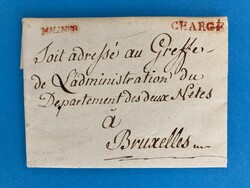 MALINES
CHARGÉ
Soit adressé au Greffe
de L'administration du
Departement des deux Nètes
à
Bruxelles